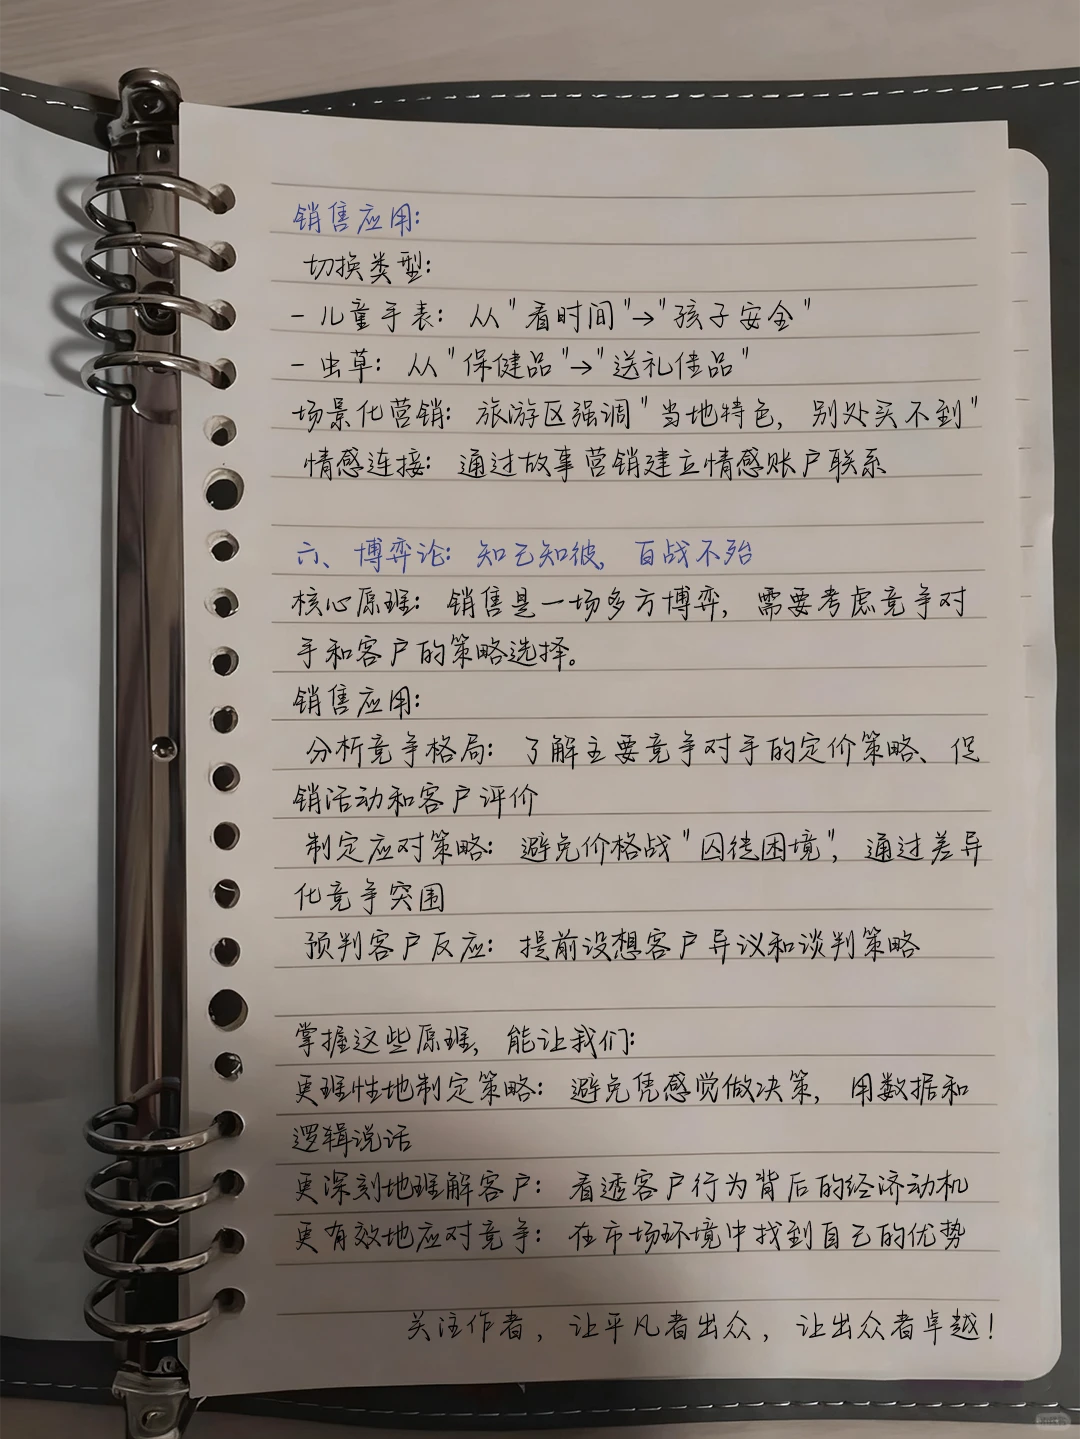 销售应用:
切换类型:
- 儿童手表: 从"看时间"→"孩子安全"
- 虫草: 从"保健品"→"送礼佳品"
场景化营销: 旅游区强调"当地特色, 别处买不到"
情感连接: 通过故事营销建立情感账户联系
六、博弈论: 知己知彼, 百战不殆
核心原理: 销售是一场多方博弈, 需要考虑竞争对
手和客户的策略选择。
销售应用:
分析竞争格局: 了解主要竞争对手的定价策略、促
销活动和客户评价
制定应对策略: 避免价格战"囚徒困境", 通过差异
化竞争突围
预判客户反应: 提前设想客户异议和谈判策略
掌握这些原理, 能让我们:
更理性地制定策略: 避免凭感觉做决策, 用数据和
逻辑说话
更深刻地理解客户: 看透客户行为背后的经济动机
更有效地应对竞争: 在市场环境中找到自己的优势
关注作者, 让平凡者出众, 让出众者卓越!